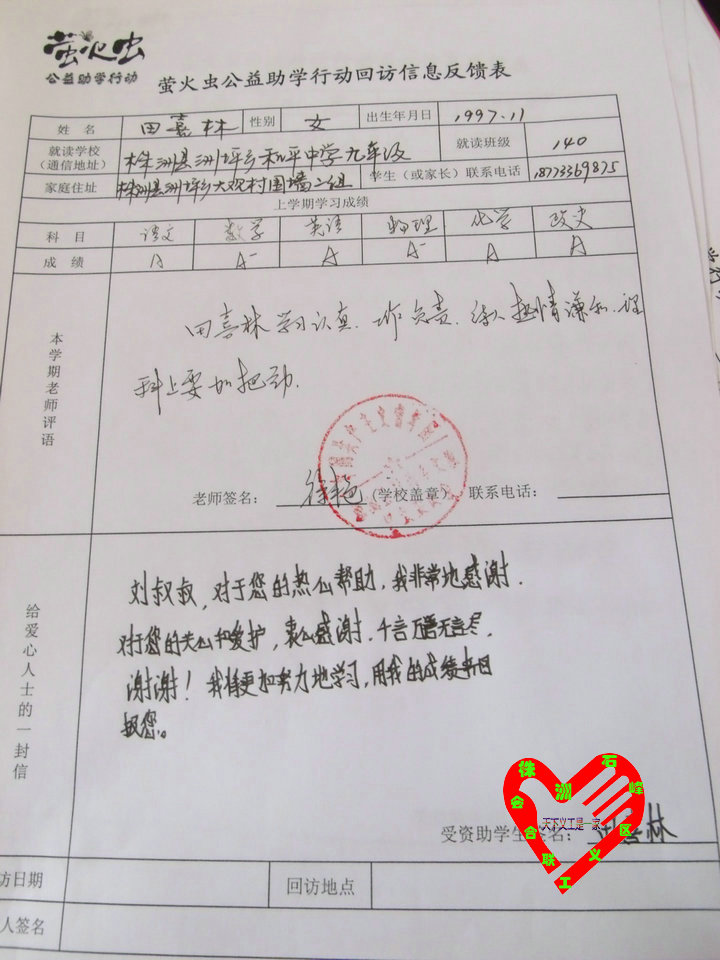 萤火虫
公益助学行动
萤火虫公益助学行动回访信息反馈表
姓 名 田喜林 性别 女 出生年月日 1997.11
就读学校 株洲县洲坪乡和平中学九年级 就读班级 140
(通信地址)
家庭住址 株洲县洲坪乡大观村围墙二组 学生（或家长）联系电话 18773369875
上学期学习成绩
科 目 语文 数学 英语 物理 化学 政史
成 绩 A A- A A- A A
本学期老师评语
田喜林学习认真、工作负责、待人热情谦和、理
科上要加把劲.
老师签名： 徐艳 (学校盖章) 联系电话：
给爱心人士的一封信
刘叔叔，对于您的热心帮助，我非常地感谢.
对于您的关心和爱护，衷心感谢，千言万语无言尽，
谢谢！我将更加努力地学习，用我的成绩来回
报您。
受资助学生 名： 田喜林
株洲石峰区义工联合会
天下义工是一家
访日期 回访地点
人签名